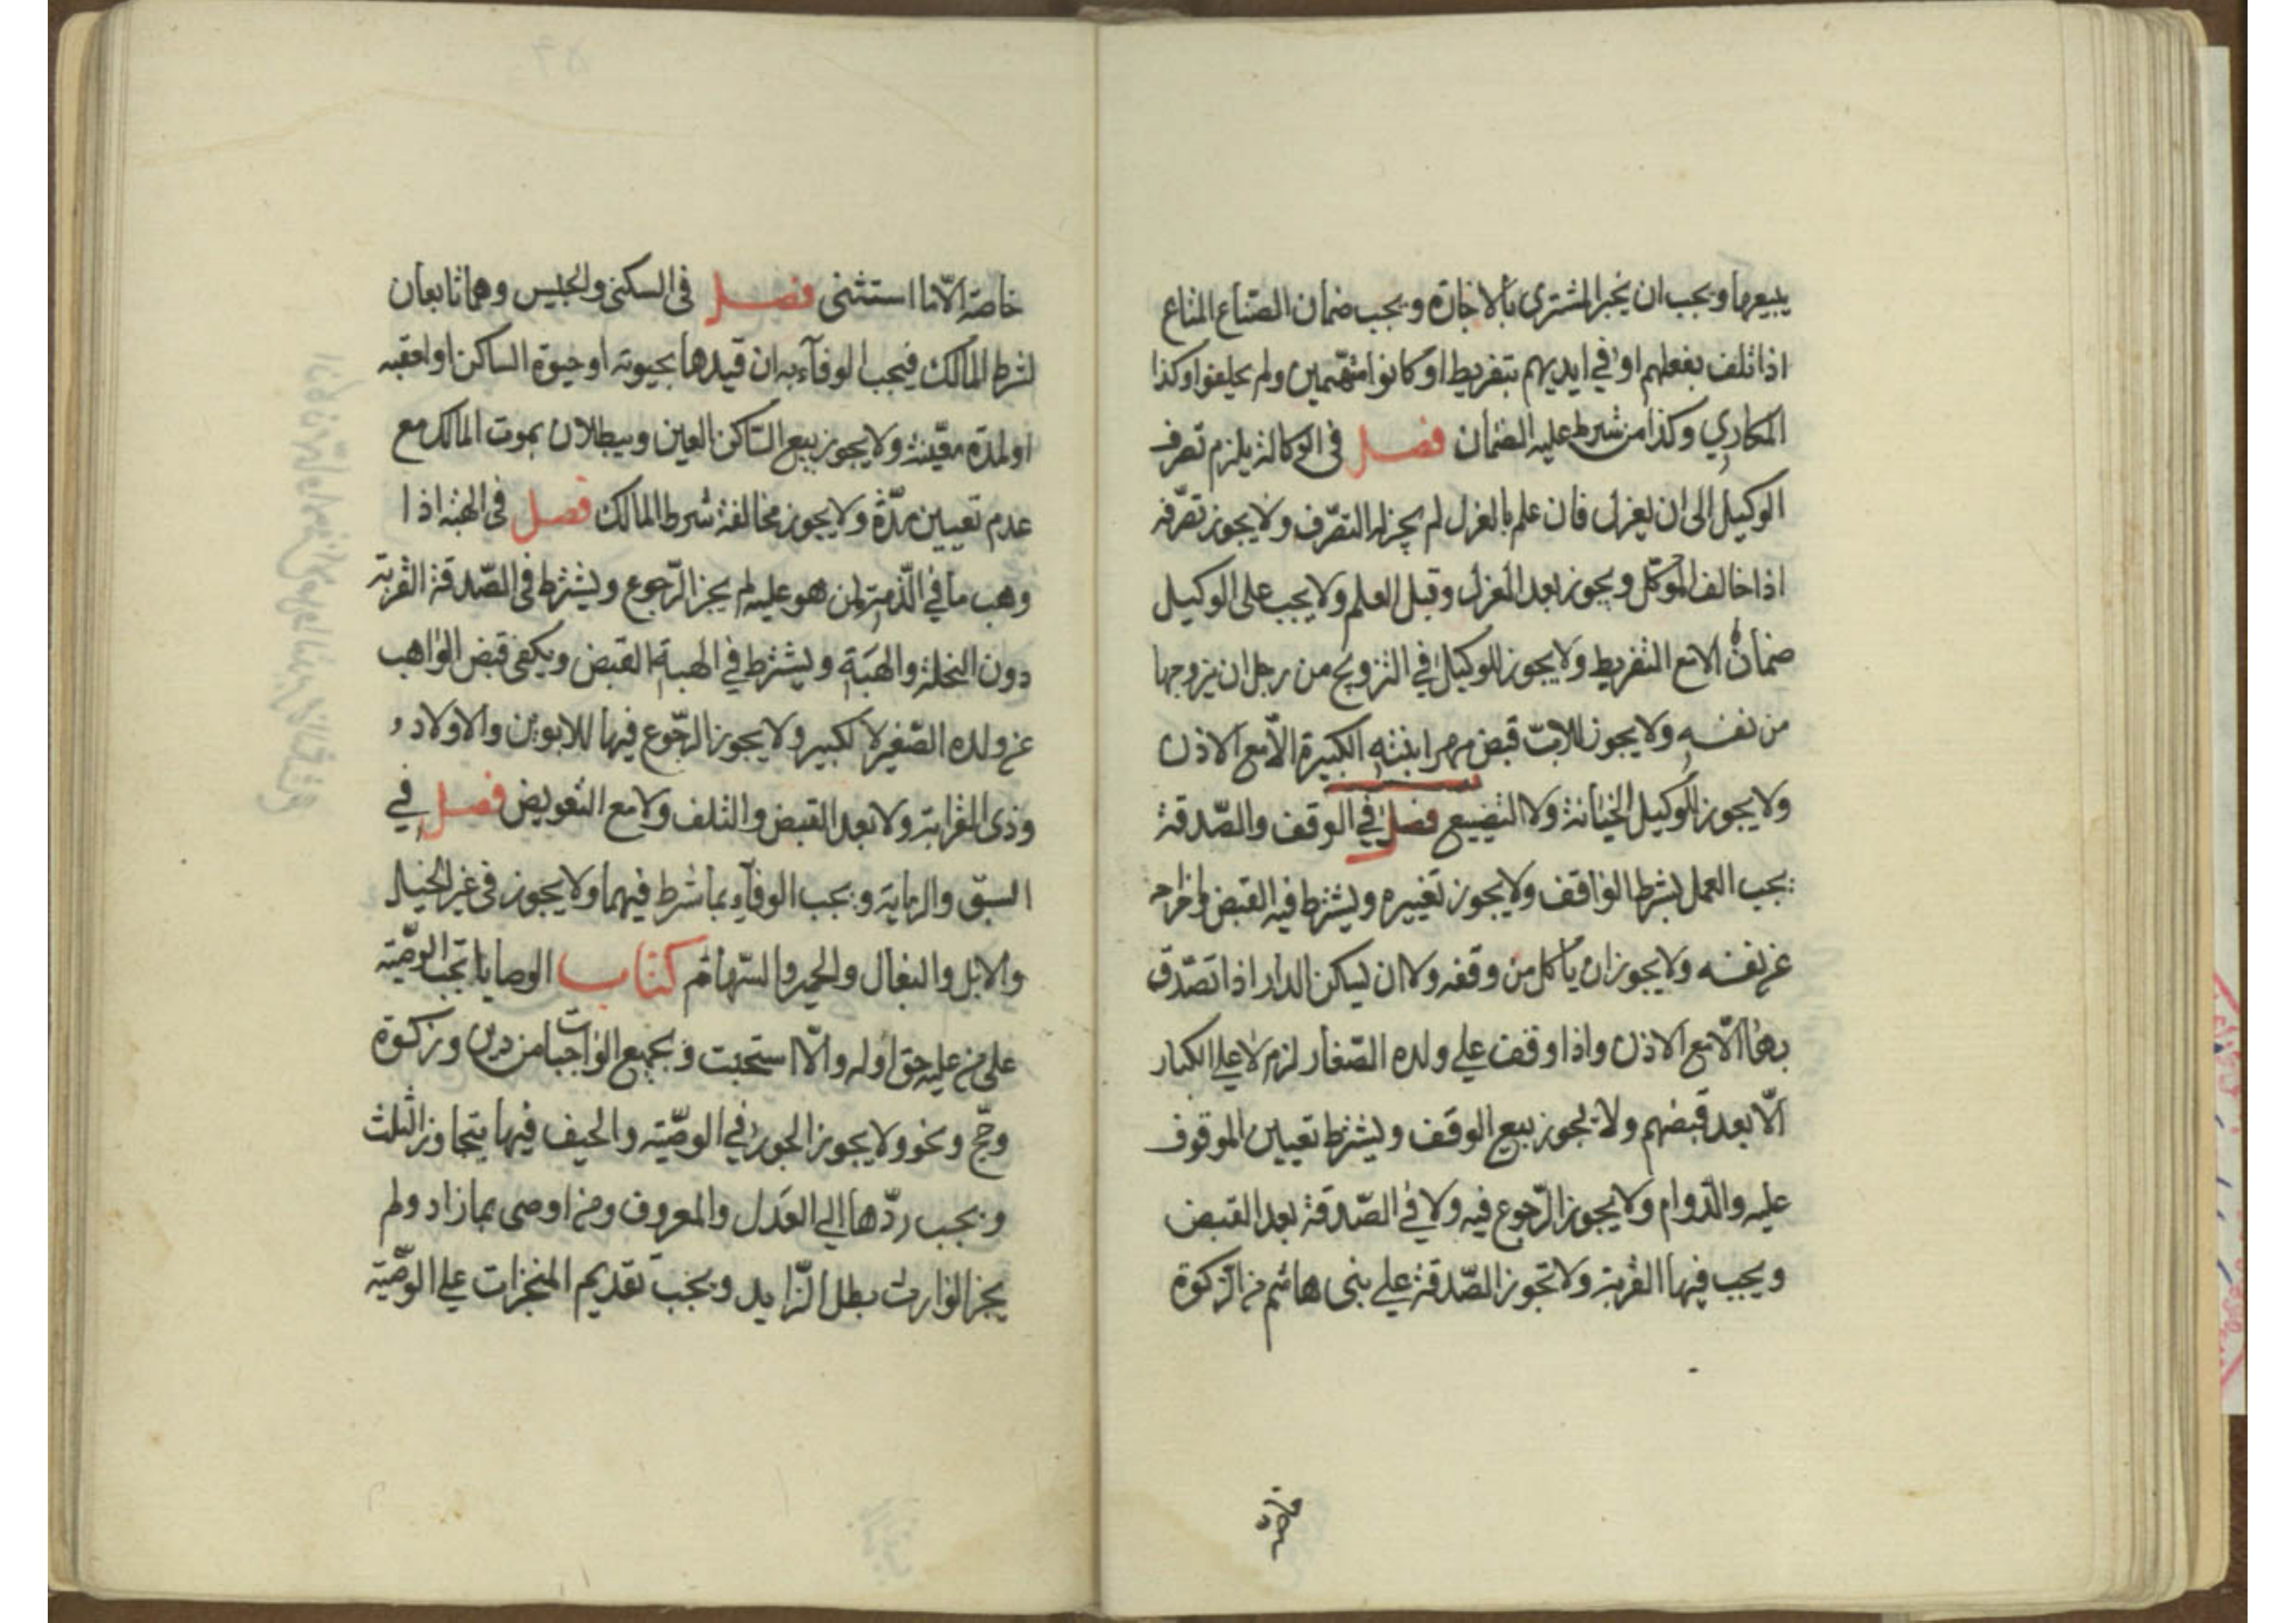 يبيعها ويجب ان يخبر المشترى بالاجارة ويجب ضمان الصناع المتاع
اذا تلف بفعلهم او في ايديهم بتفريط او كانوا متهمين ولم يحلفوا وكذا
المكاري وكذا من شرط عليه الضمان فصل فى الوكالة يلزم تصرف
الوكيل الى ان يعزل فان علم بالعزل لم يجز له التصرف ولا يجوز تصرفه
اذا خالف الموكل ويجوز بعد العزل وقبل العلم ولا يجب على الوكيل
ضمان الا مع التفريط ولا يجوز للوكيل في التزويج من رجل ان يزوجها
من نفسه ولا يجوز للاب قبض مهر ابنته الكبيرة الّا مع الاذن
ولا يجوز للوكيل الخيانة ولا التضييع فصل في الوقف والصّدقة
يجب العمل بشرط الواقف ولا يجوز تغييره ويشترط فيه القبض واخراجه
عن نفسه ولا يجوز ان يأكل من وقفه ولا ان يسكن الدار اذا تصدّق
بها الّا مع الاذن واذا وقف على ولده الصّغار لزم لا على الكبار
الّا بعد قبضهم ولا يجوز بيع الوقف ويشترط تعيين الموقوف
عليه والدّوام ولا يجوز الرّجوع فيه ولا في الصّدقة بعد القبض
ويجب فيها القربة ولا تجوز الصّدقة على بنى هاشم من الزكوة
خاصّة
خاصّة الّا ما استثنى فصل فى السكنى والحبيس وهما تابعان
لشرط المالك فيجب الوفآء به ان قيدها بحيوته او حيوة الساكن او لعقبه
او لمدة معيّنة ولا يجوز بيع السّاكن العين ويبطلان بموت المالك مع
عدم تعيين مدّة ولا يجوز مخالفة شرط المالك فصل فى الهبة اذا
وهب ما في الذّمة لمن هو عليه لم يجز الرّجوع ويشترط فى الصّدقة القربة
دون النحلة والهبَة ويشترط في الهبة القبض ويكفى قبض الواهب
عن ولده الصّغير لا لكبير ولا يجوز الرّجوع فيها للابوين والاولاد و
وذى القرابة ولا بعد القبض والتلف ولا مع التعويض فصل في
السبق والرماية ويجب الوفآء بما شرط فيهما ولا يجوز فى غير الخيل
والابل والبغال والحمير والسّهام كتاب الوصايا تجب الوصّية
على من عليه حق اوله والّا استحبت وبجميع الواجبات من دين وزكوة
وحجّ ونحو ولا يجوز الجور في الوصّية والحيف فيها بتجاوز الثلث
ويجب ردّها الى العَدل والمعروف ومن اوصى بما زاد ولم
يجز الوارث بطل الزّايد ويجب تقديم المنجزات على الوصّية